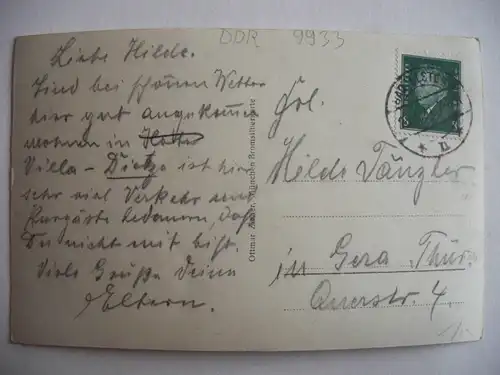 DDR 9933
Liebe Hilde.
Sind bei schönem Wetter
hier gut angekommen
wohnen in
Villa - Dietz ist hier
sehr viel Verkehr und
Kurgäste bedauern, daß
Du nicht mit bist.
Viele Grüße Deine
Eltern.
Ottmar Zieher, München Bromsilberkarte
Frl.
Hilde Tänzler
in Gera Thür.
Querstr. 4.